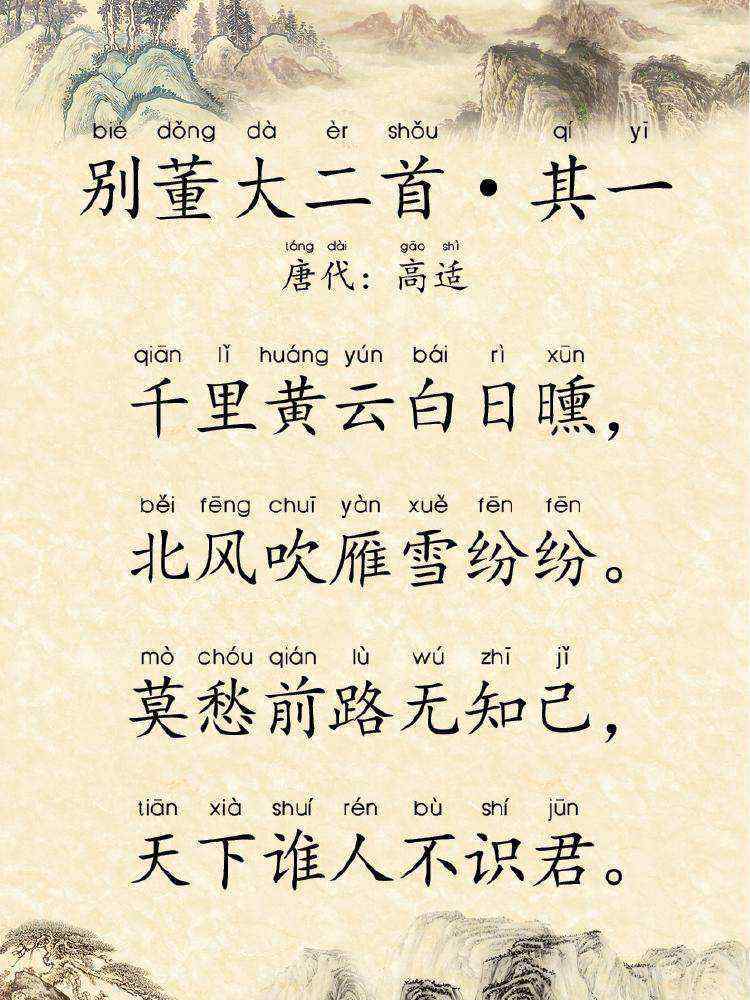 bié dǒng dà èr shǒu qí yī
别董大二首·其一
táng dài gāo shì
唐代：高适
qiān lǐ huáng yún bái rì xūn
千里黄云白日曛，
běi fēng chuī yàn xuě fēn fēn
北风吹雁雪纷纷。
mò chóu qián lù wú zhī jǐ
莫愁前路无知己，
tiān xià shuí rén bù shí jūn
天下谁人不识君。